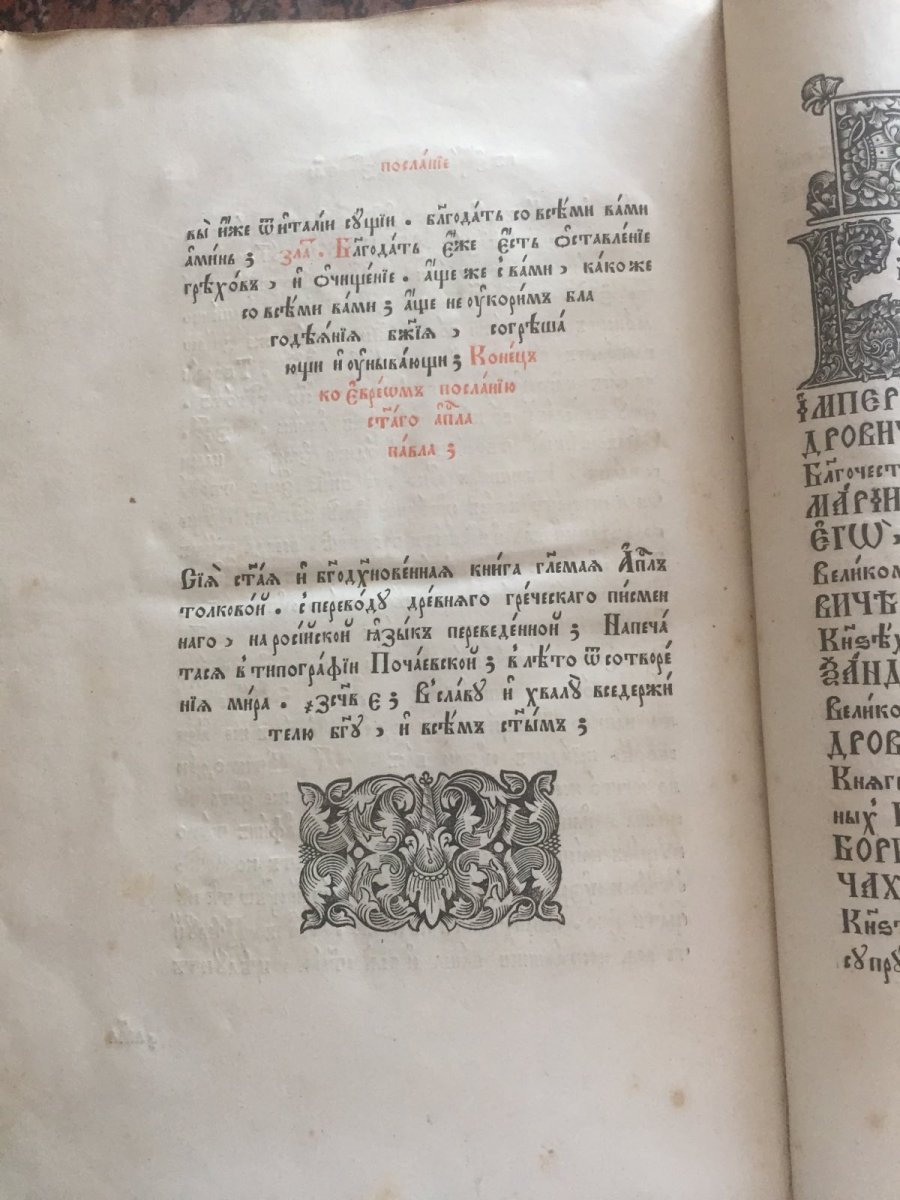 посла́нїе
вы̀ и҆́же ѿ и҆та́лїи сꙋ́щїи . бл҃года́ть со всѣ́ми ва́ми
а҆ми́нь ; зла . Бл҃года́ть є҆́же є҆́сть ѡ҆ставле́нїе
грѣхо́въ , и҆ ѡ҆чище́нїе . а҆́ще же с̾ва́ми , ка́ко же
со всѣ́ми ва́ми ; а҆́ще не ᲂу҆кори́мъ бла
годѣѧ́нїѧ бж҃їѧ , согрѣша́
ющи и҆ ᲂу҆ныва́ющи ; Коне́цъ
ко є҆вре́ѡмъ посла́нїю
ст҃а́го а҆пⷭ҇ла
па́вла ;
Сїѧ̀ ст҃а́ѧ и҆ бг҃одх҃нове́ннаѧ кни́га гл҃емаѧ А҆пⷭ҇лъ
толково́й . с̾перево́дꙋ дре́внѧго гре́ческаго пи́смен
наго , на росі́йской ѩ҆зы́къ переведе́нной ; Напеча́
тасѧ в̾типогра́фїи Поча́евской ; в̾лѣ́то ѿ сотворе́
нїѧ ми́ра . ҂зсч҃в є ; В̾сла́вꙋ и҆ хвалꙋ̀ вседержи́
телю бг҃ꙋ , и҆ всѣ́мъ ст҃ы́мъ ;
і҆МПЕР
ДРОВИЧ
Бл҃гочест
МАРІ́Н
Є҆ГѠ̀ ,
Вели́ком
ВИЧѢ
Кн҃ѕѣ́х
ᲂАНД
Вели́ко
ДРОВ
Кнѧг
ных̾
БОРИ
ЧАХ
Кн҃ѕѣ
сꙋпрꙋ